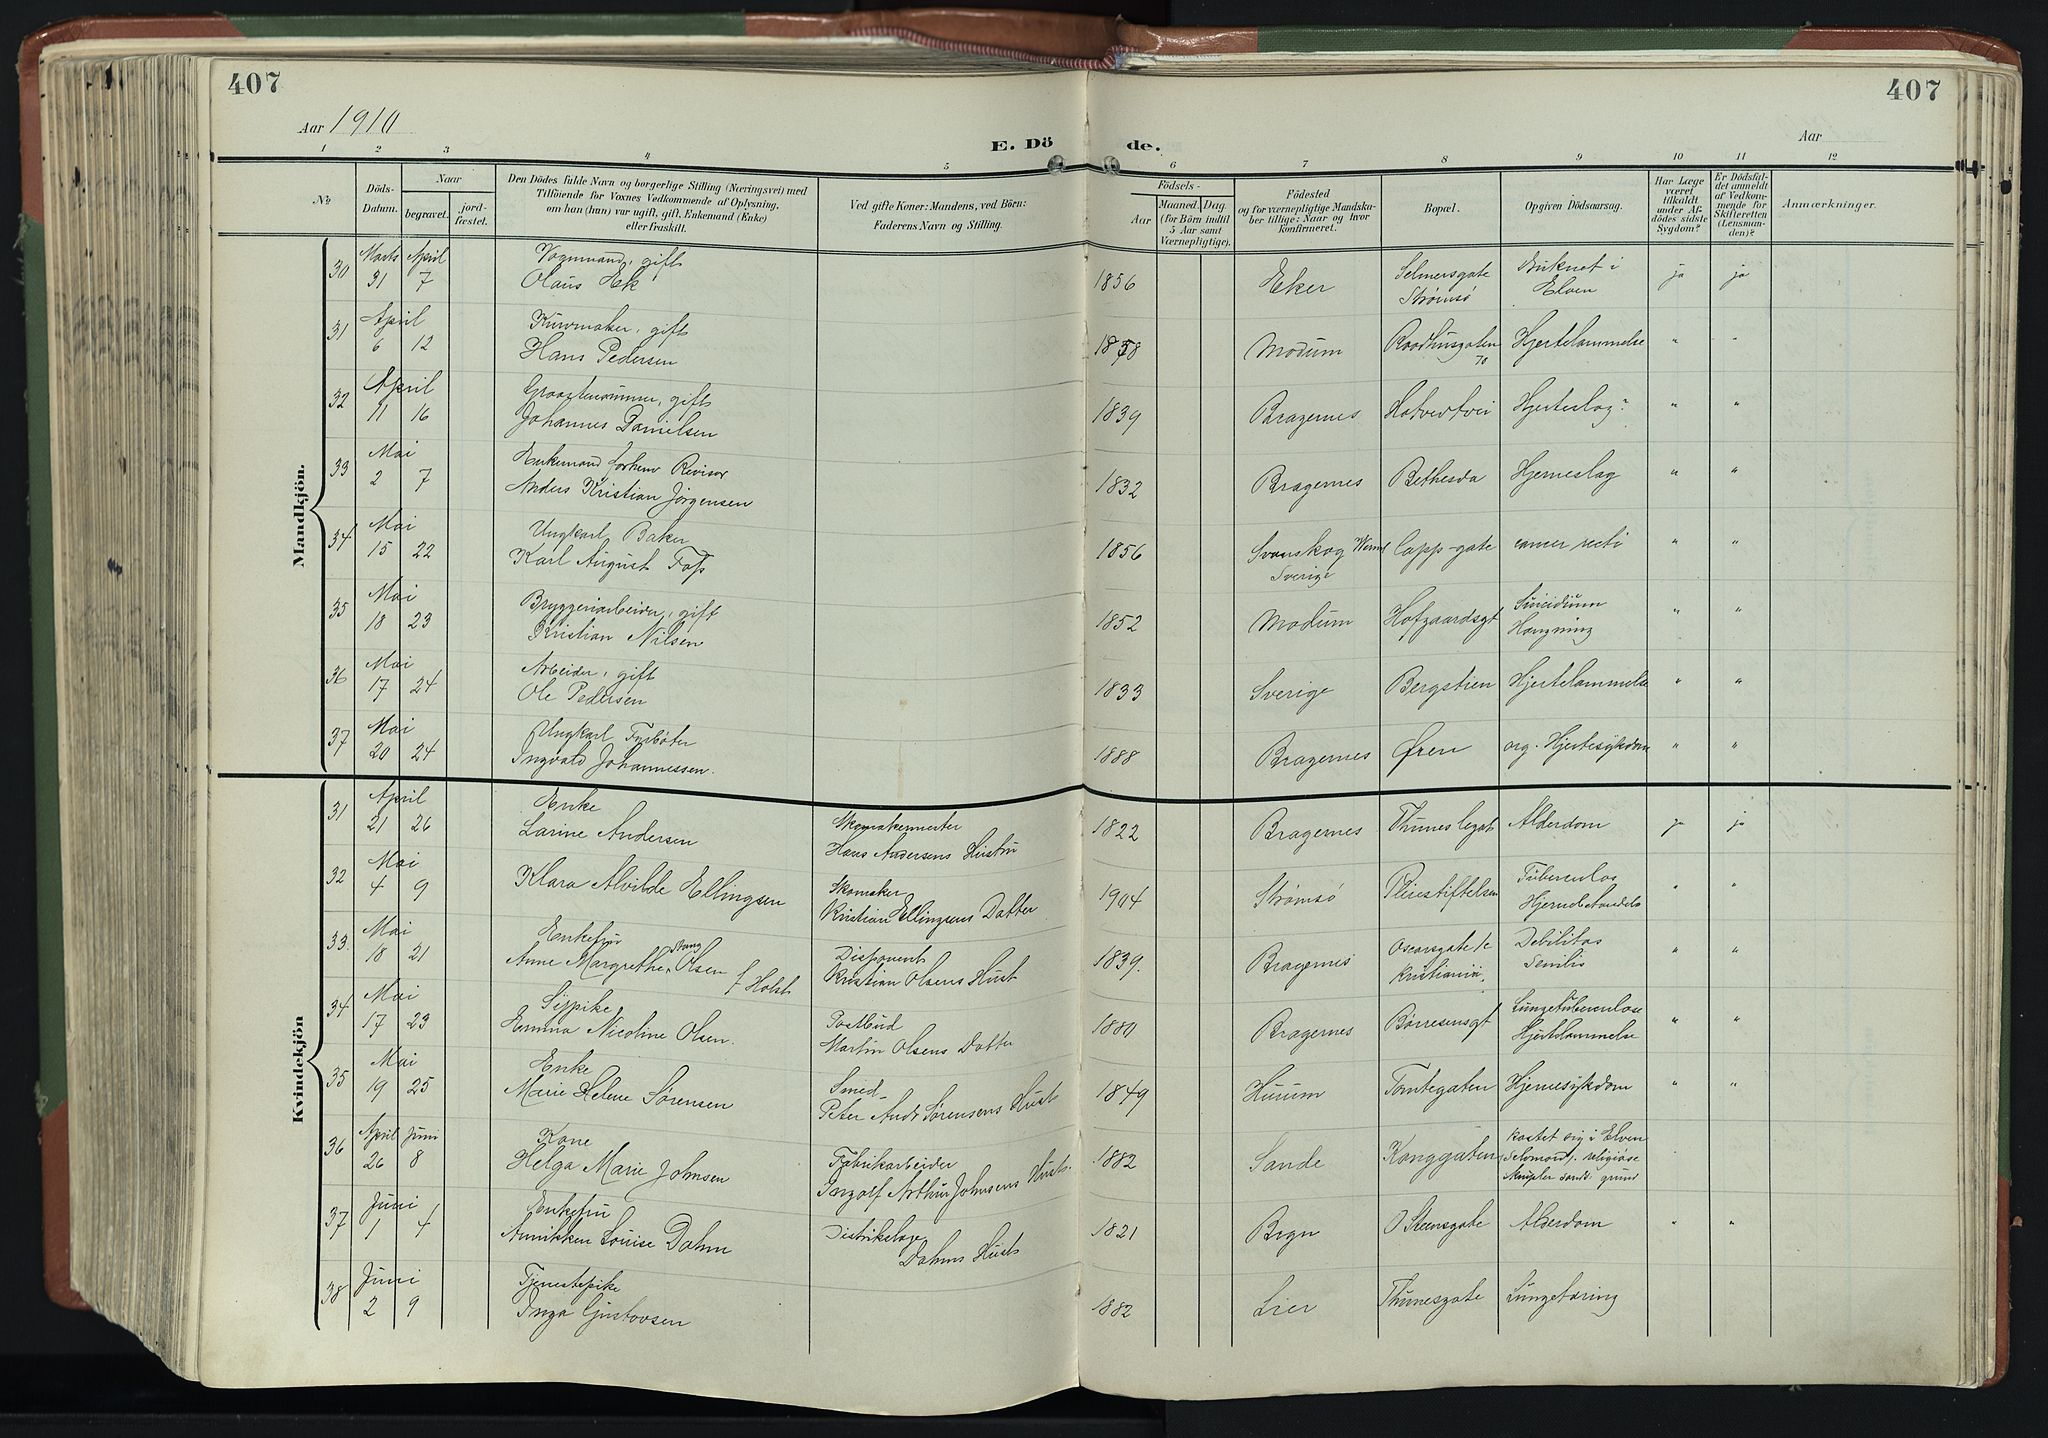 407
407
Aar 1910
Aar
E. Dö de.
1 2 3 4 5 6 7 8 9 10 11 12
No
Döds-
Datum.
Naar
begravet.
jord-
fæstet.
Den Dödes fulde Navn og borgerlige Stilling (Næringsvei) med
Tilföiende for Voxnes Vedkommende af Oplysning,
om han (hun) var ugift, gift, Enkemand (Enke)
eller fraskilt.
Ved gifte Koner: Mandens, ved Börn:
Faderens Navn og Stilling.
Födsels-
Aar
Maaned.
Dag.
(for Börn indtil
5 Aar samt
Værnepligtige).
Födested
og for værnepligtige Mandska-
ber tillige: Naar og hvor
konfirmeret.
Bopæl.
Opgiven Dödsaarsag.
Har Læge
været
tilkaldt
under Af-
dödes sidste
Sygdom?
Er Dödsfal-
det anmeldt
af Vedkom-
mende for
Skifteretten
(Lensman-
den)?
Anmærkninger.
Mandkjön.
30 Marts April Vognmand, gift Selmersgate Druknet i
31 7 Olaus Ek 1856 Eker Strømsø Elven ja ja
31 April Kurvmaker, gift
6 12 Hans Pedersen 1838 Modum Raadhusgaten Hjertelammelse " "
70
32 April gift
11 16 Johannes Danielsen 1839 Bragernes Hotvedtvei Hjerteslag? " "
33 Mai Enkemand forhenv Revisor
2 7 Anders Kristian Jörgensen 1832 Bragernes Bethesda Hjerneslag " "
34 Mai Ungkarl, Baker
15 22 Karl August Fos 1856 Svanskog Werml Capp-gate cancer recti " "
Sverige
35 Mai Bryggeriarbeider, gift Suicidium
18 23 Kristian Nilsen 1852 Modum Hofgaardsgt Hængning " "
36 Mai Arbeider, gift
17 24 Ole Pedersen 1833 Sverige Bergstien Hjertelammelse " "
37 Mai Ungkarl Fyrbøter
20 24 Ingvald Johannessen. 1888 Bragernes Øren org. Hjertesykdom " "
Kvindekjön
31 April Enke Skomakermester
21 26 Larine Andersen Hans Andersens Hustru 1822 Bragernes Thunes legat Alderdom ja ja
32 Mai Skomaker Tuberculos
4 9 Klara Alvilde Ellingsen Kristian Ellingsens Datter 1904 Strømsø Pleiestiftelsen Hjernebetændels " "
33. Mai Enkefru Stang Disponent Oscarsgate 1c Debilitas
18 21 Anne Margrethe Olsen f Holst Kristian Olsens Hust 1839. Bragernes Kristiania, Senilis " "
34 Mai Sypike Postbud Lungetuberculose
17 23 Emma Nicoline Olsen. Martin Olsens Datter 1880 Bragernes Børresensgt Hjertelammelse " "
35 Mai Enke Smed
19 25 Marie Helene Sørensen Peter Andr Sørensens Hust 1849 Hurum Tomtegaten Hjernesykdom " "
36 April Juni Kone Fabrikarbeider kastet sig i Elven
26 8 Helga Marie Johnsen Ingolf Arthur Johnsens Hust. 1882 Sande Konggaten Selvmord, religiøse
grund
37 Juni Enkefru Distriktslæge
1 4 Annikken Louise Dahm Dahms Hust 1821 Brgn O Steensgate Alderdom " "
38 Juni Tjenestepike
2 9 Inga Gustavsen 1882 Lier Thunesgate Lungetæring